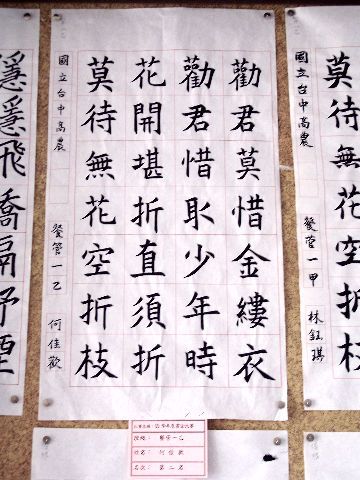 莫待無花空折枝
國立台中高農 餐管一甲 林鈺琪
勸君莫惜金縷衣
勸君惜取少年時
花開堪折直須折
莫待無花空折枝
國立台中高農 餐管一乙 何佳歡
隱隱飛橋隔野煙
班級：餐管一乙
姓名：何佳歡
名次：第二名